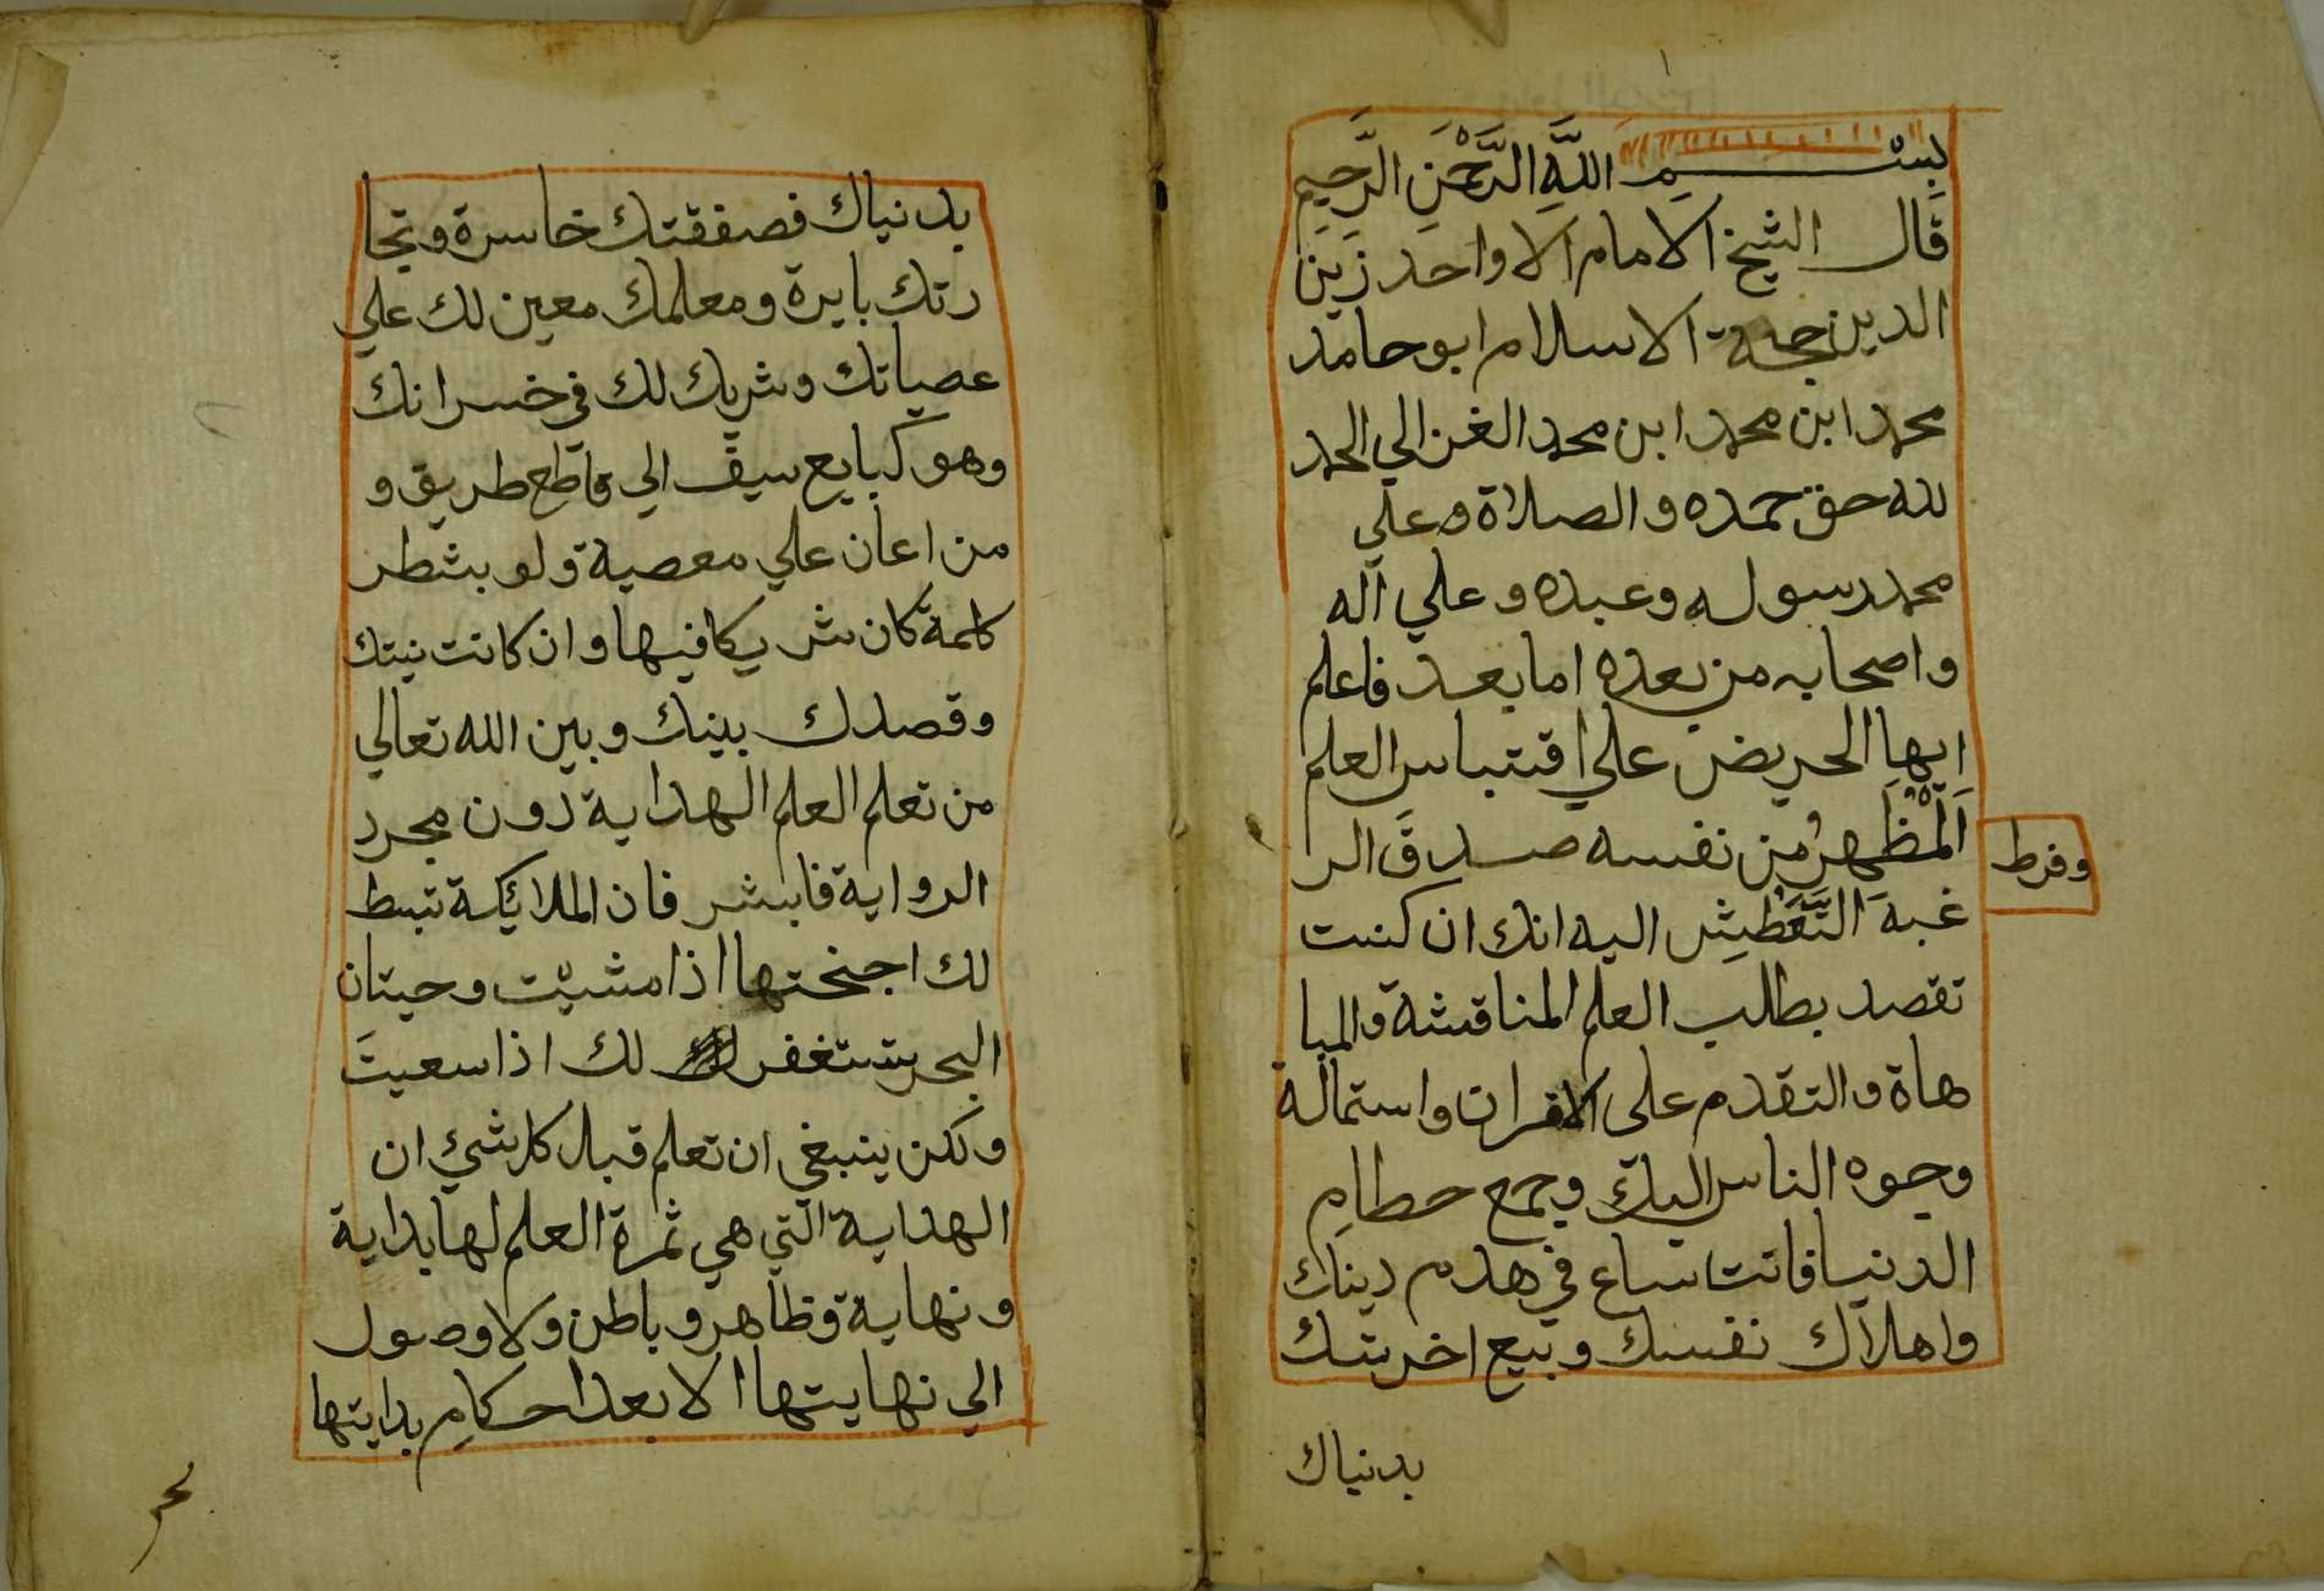 ١
بِسْمِ اللَّهِ الرَّحْمَنِ الرَّحِيمِ
قَال الشيخ الامام الاواحد زَين
الدين حجة الاسلام ابو حامد
محمد ابن محمد ابن محمد الغزالي الحمد
لله حق حمده والصلاة وعلي
محمد رسوله وعبده وعلي آله
واصحابه من بعده اما بعد فاعلم
ايها الحريض علي اقتباس العلم
اَلمْظهرُ من نفسه صدقَ الر
وفرط
غبة التَّعَطُّشِ اليه انك ان كنت
تقصد بطلب العلم المناقشة والمبا
هاة والتقدم على الاقران واستمالة
وجوه الناس اليك وجمع حطامِ
الدنيا فانت ساع في هدم دينك
واهلاك نفسك وبيع اخريتك
بدنياك
بدنياك فصفقتك خاسرة وتجا
رتك بايرة ومعلمك معين لك علي
عصياتك وشريك لك في خسرانك
وهو كبايع سيف الي قاطع طريق و
من اعان علي معصية ولو بشطر
كلمة كان شريكا فيها وان كانت نيتك
وقصدك بينك وبين الله تعالي
من تعلم العلم الهداية دون مجرد
الرواية فابشر فان الملائكة تبسط
لك اجنحتها اذا مشيت وحيتان
البحر تستغفر لك اذا سعيتَ
ولكن ينبغي ان تعلم قبل كل شيئ ان
الهداية التي هي ثمرة العلم لها بداية
ونهاية وظاهر وباطن ولا وصول
الي نهايتها الا بعد احكامِ بدايتها